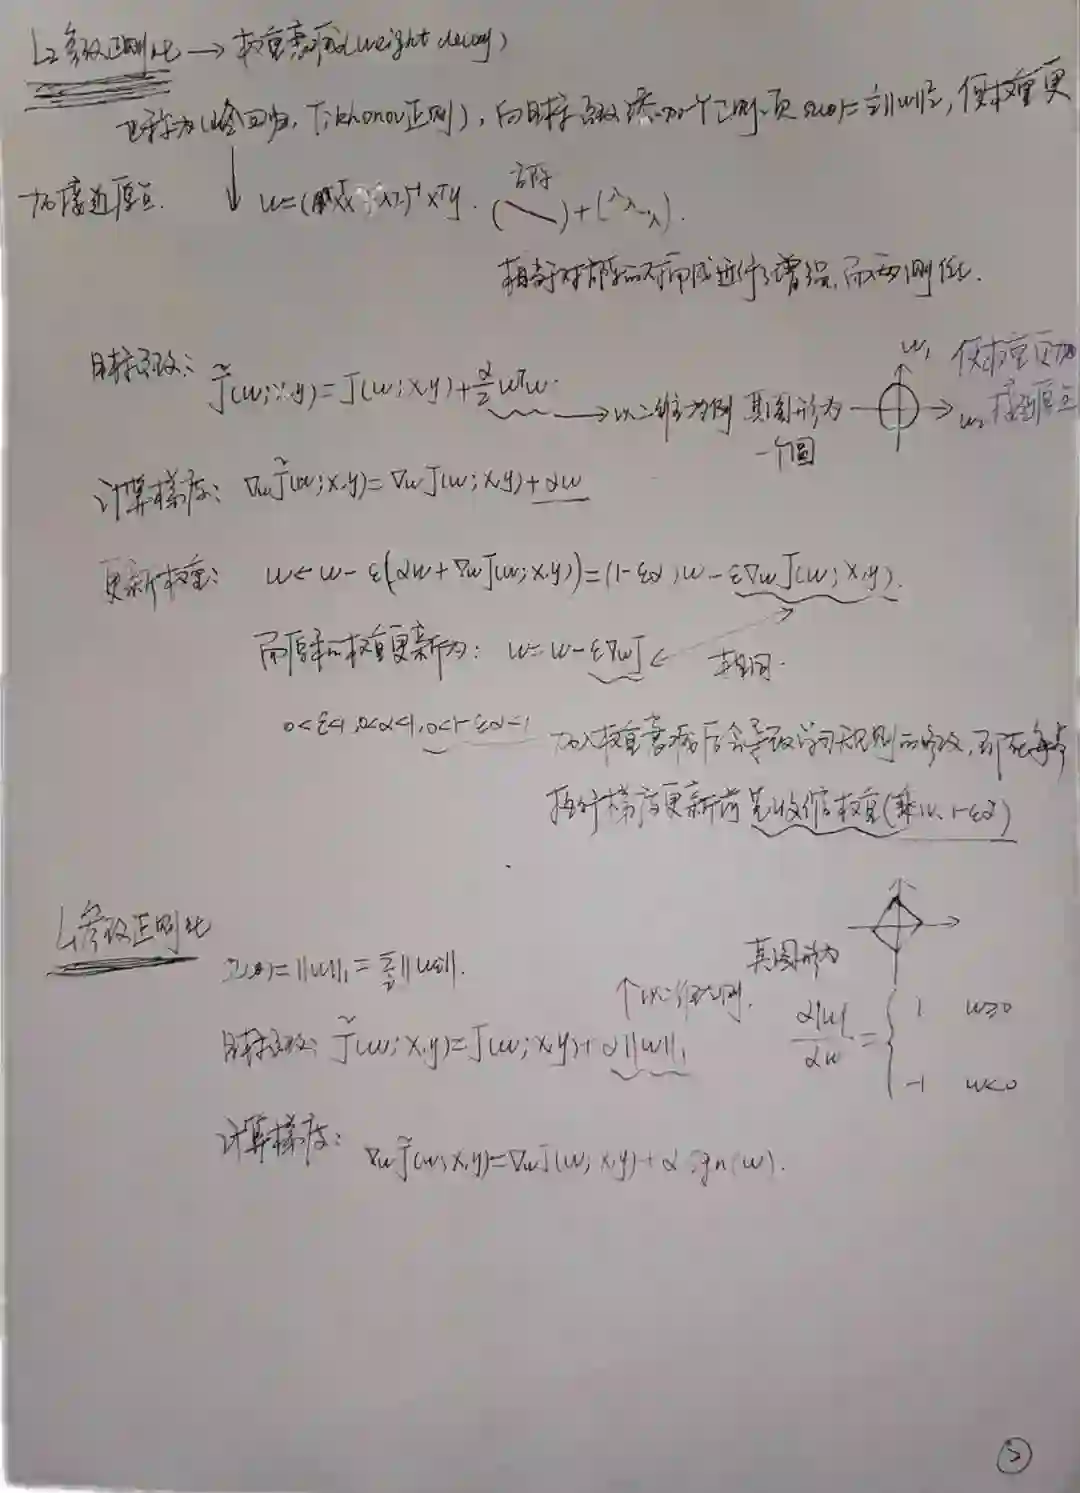 L₂参数正则化 → 权重衰减(weight decay)
也称为(岭回归, Tikhonov正则), 向目标函数添加一个正则项 Ω(θ)=½||w||²₂, 使权重更
加接近原点. ↓ w=(XᵀX+λI)⁻¹Xᵀy. (╲)+(λ λ ⋱ λ).
目标函数: J̃(w;X,y)=J(w;X,y)+α/2 wᵀw. → 以二维为例 其图形为
一个圆
w₁
w₂
使权重更加
接近原点
计算梯度: ∇wJ̃(w;X,y)=∇wJ(w;X,y)+αw
更新权重: w←w-ε(αw+∇wJ(w;X,y))=(1-εα)w-ε∇wJ(w;X,y).
而原来的权重更新为: w=w-ε∇wJ ← 相同.
0<ε<1, 0<α<1, 0<1-εα<1
加入权重衰减后会导致学习规则的修改, 即在每步
执行梯度更新前先收缩权重(乘以 1-εα)
L₁参数正则化
Ω(θ)=||w||₁=Σᵢ||wᵢ||.
↑以二维为例.
其图形为
目标函数: J̃(w;X,y)=J(w;X,y)+α||w||₁
d|w|/dw = { 1 w≥0
-1 w<0
计算梯度: ∇wJ̃(w;X,y)=∇wJ(w;X,y)+α sgn(w).
②